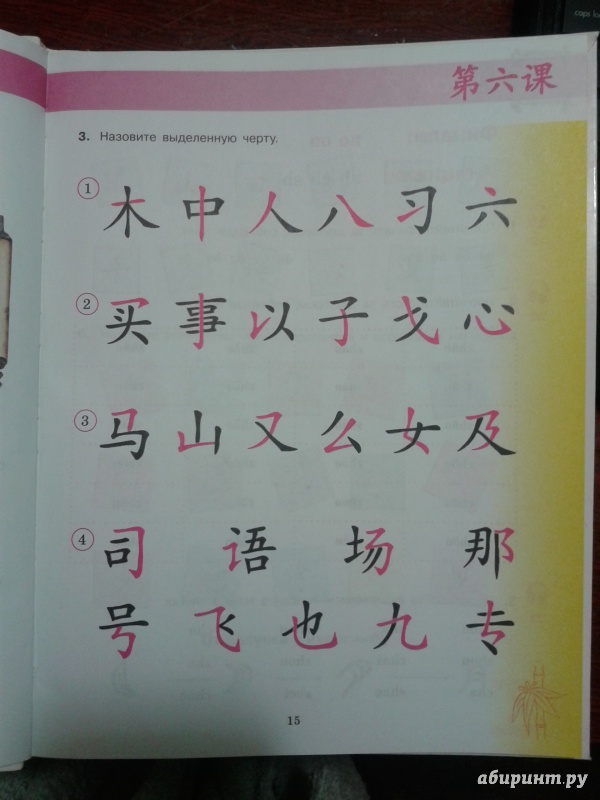 caps lo
第六课
3. Назовите выделенную черту.
① 木 中 人 八 习 六
② 买 事 以 子 戈 心
③ 马 山 又 么 女 及
④ 司 语 场 那
号 飞 也 九 专
15
абиринт.ру